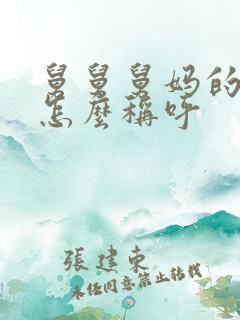 舅舅舅妈的
怎麽稱呼
張建東
未经同意禁止转载